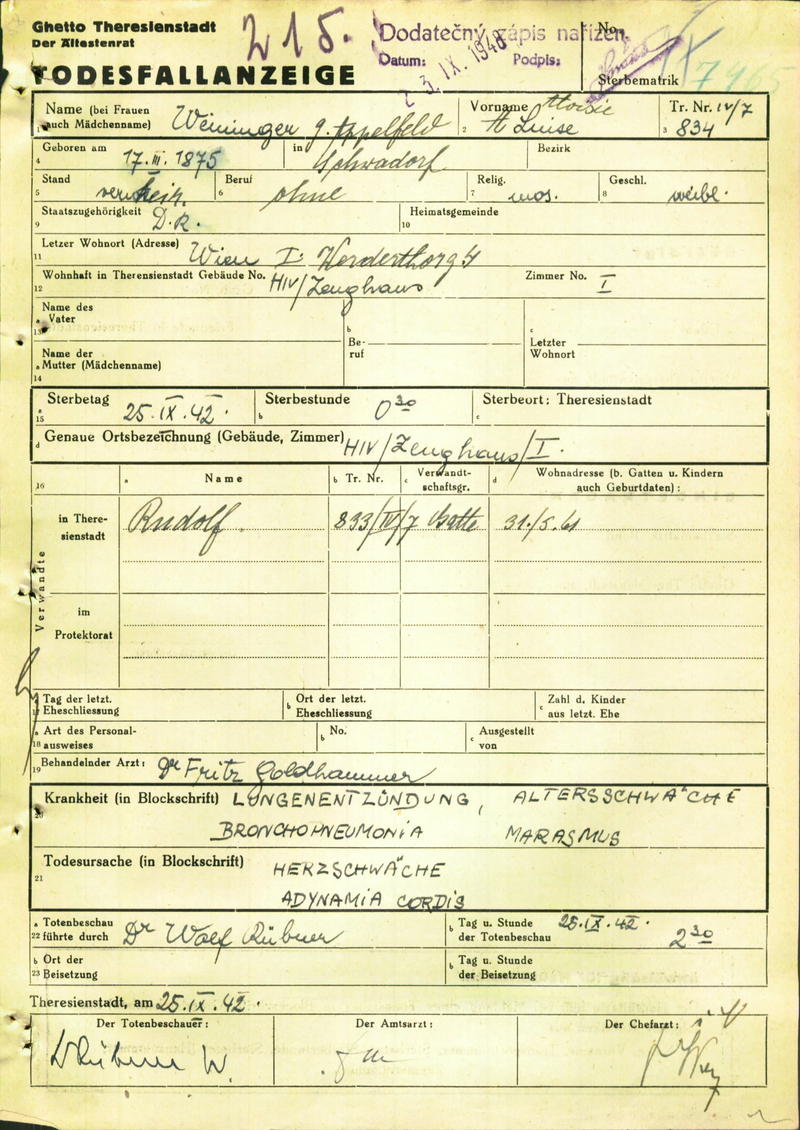 Ghetto Theresienstadt
Der Ältestenrat
215.
Dodatečný zápis nařízen.
Datum: Podpis:
3. IX. 1948
No.
Sterbematrik
TODESFALLANZEIGE
Name (bei Frauen auch Mädchenname) Weininger g. Appelfeld
Vorname Aloisie
Luise
Tr. Nr. IV/7
834
Geboren am 17. III. 1875 in Schwadorf Bezirk
Stand verheir. Beruf ohne Relig. mos. Geschl. weibl.
Staatszugehörigkeit D.R. Heimatsgemeinde
Letzer Wohnort (Adresse) Wien I.
Wohnhaft in Therensienstadt Gebäude No. HIV/Zeughaus Zimmer No. I
Name des Vater
Be-ruf
Letzter Wohnort
Name der Mutter (Mädchenname)
Sterbetag 25. IX. 42. Sterbestunde 0 30 Sterbeort: Theresienstadt
Genaue Ortsbezeichnung (Gebäude, Zimmer) HIV/Zeughaus/I.
Name Tr. Nr. Verwandt-schaftsgr. Wohnadresse (b. Gatten u. Kindern auch Geburtdaten):
Verwandte
in There-sienstadt Rudolf. 833/IV/7 Gatte 31./5. 61
im Protektorat
Tag der letzt. Eheschliessung
Ort der letzt. Eheschliessung
Zahl d. Kinder aus letzt. Ehe
Art des Personal-ausweises
No.
Ausgestellt von
Behandelnder Arzt: Dr Fritz Goldhammer
Krankheit (in Blockschrift) LUNGENENTZÜNDUNG, ALTERSSCHWÄCHE
BRONCHOPNEUMONIA MARASMUS
Todesursache (in Blockschrift) HERZSCHWÄCHE
ADYNAMIA CORDIS
Totenbeschau führte durch Dr Wolf Rübner
Tag u. Stunde der Totenbeschau 25. IX. 42. 2 30
Ort der Beisetzung
Tag u. Stunde der Beisetzung
Theresienstadt, am 25. IX. 42.
Der Totenbeschauer: Der Amtsarzt: Der Chefarzt: